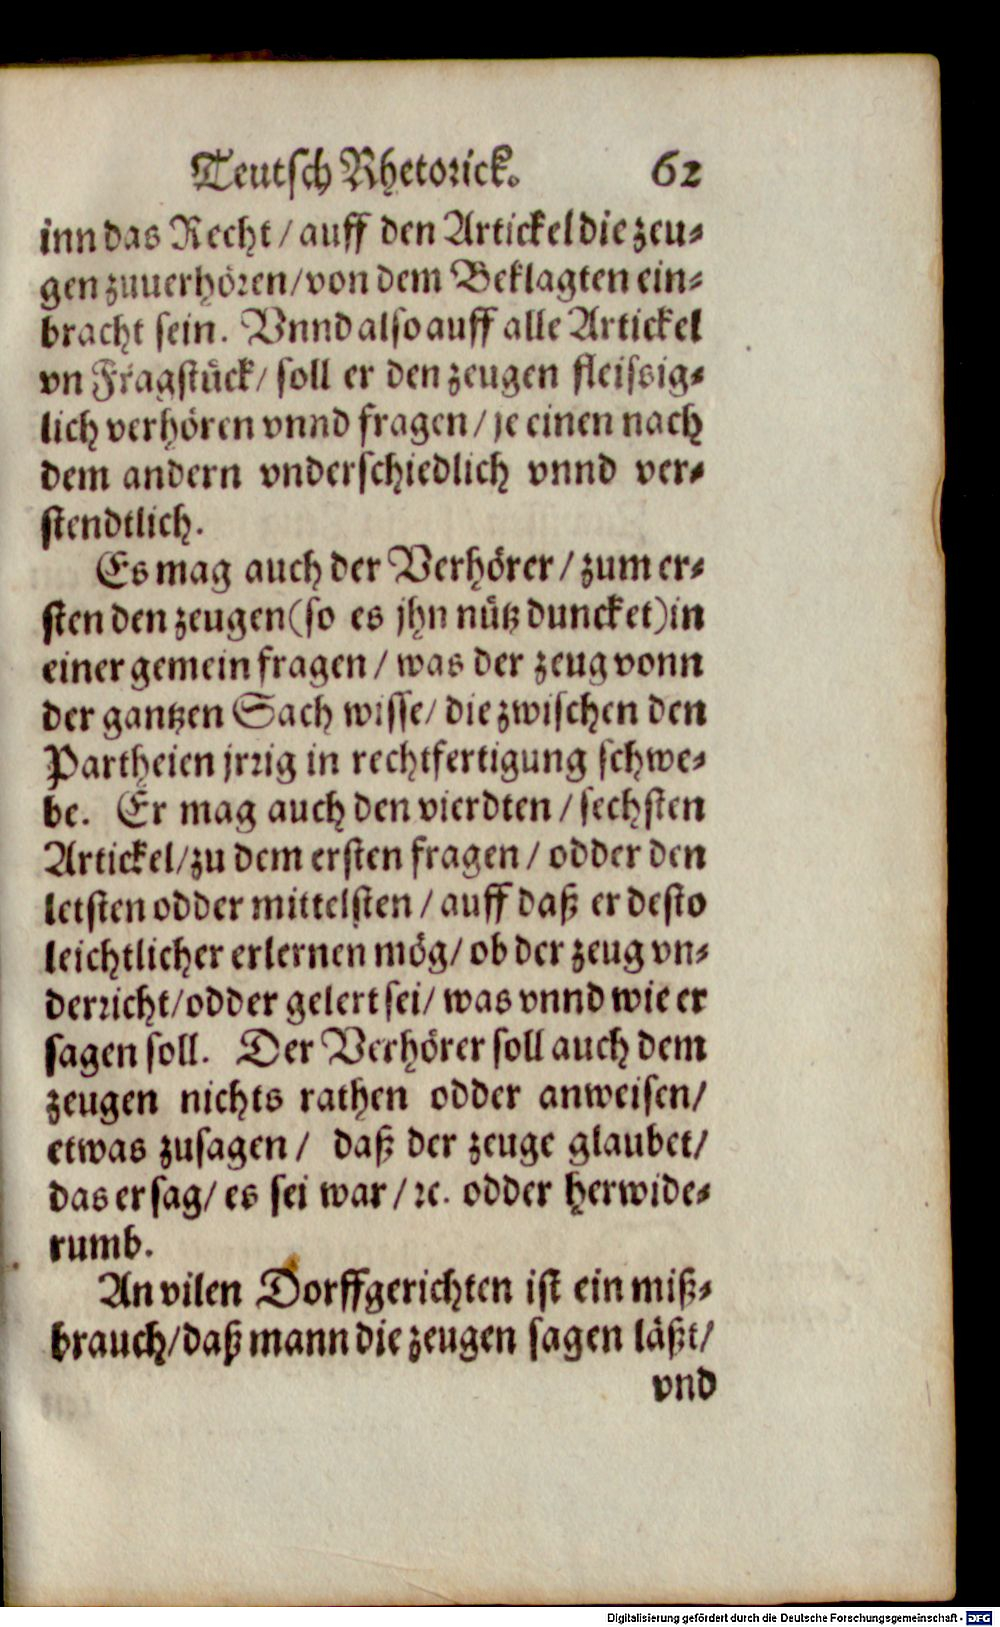 Teutsch Rhetorick. 62
inn das Recht / auff den Artickel die zeu⸗
gen zuuerhören / von dem Beklagten ein⸗
bracht sein. Vnnd also auff alle Artickel
vn Fragstück / soll er den zeugen fleissig⸗
lich verhören vnnd fragen / je einen nach
dem andern vnderschiedlich vnnd ver⸗
stendtlich.
Es mag auch der Verhörer / zum er⸗
sten den zeugen (so es jhn nütz duncket) in
einer gemein fragen / was der zeug vonn
der gantzen Sach wisse / die zwischen den
Partheien jrrig in rechtfertigung schwe⸗
be. Er mag auch den vierdten / sechsten
Artickel / zu dem ersten fragen / odder den
letsten odder mittelsten / auff daß er desto
leichtlicher erlernen mög / ob der zeug vn⸗
derricht / odder gelert sei / was vnnd wie er
sagen soll. Der Verhörer soll auch dem
zeugen nichts rathen odder anweisen /
etwas zusagen / daß der zeuge glaubet /
das er sag / es sei war / ꝛc. odder herwide⸗
rumb.
An vilen Dorffgerichten ist ein miß⸗
brauch / daß mann die zeugen sagen läßt /
vnd
Digitalisierung gefördert durch die Deutsche Forschungsgemeinschaft - DFG